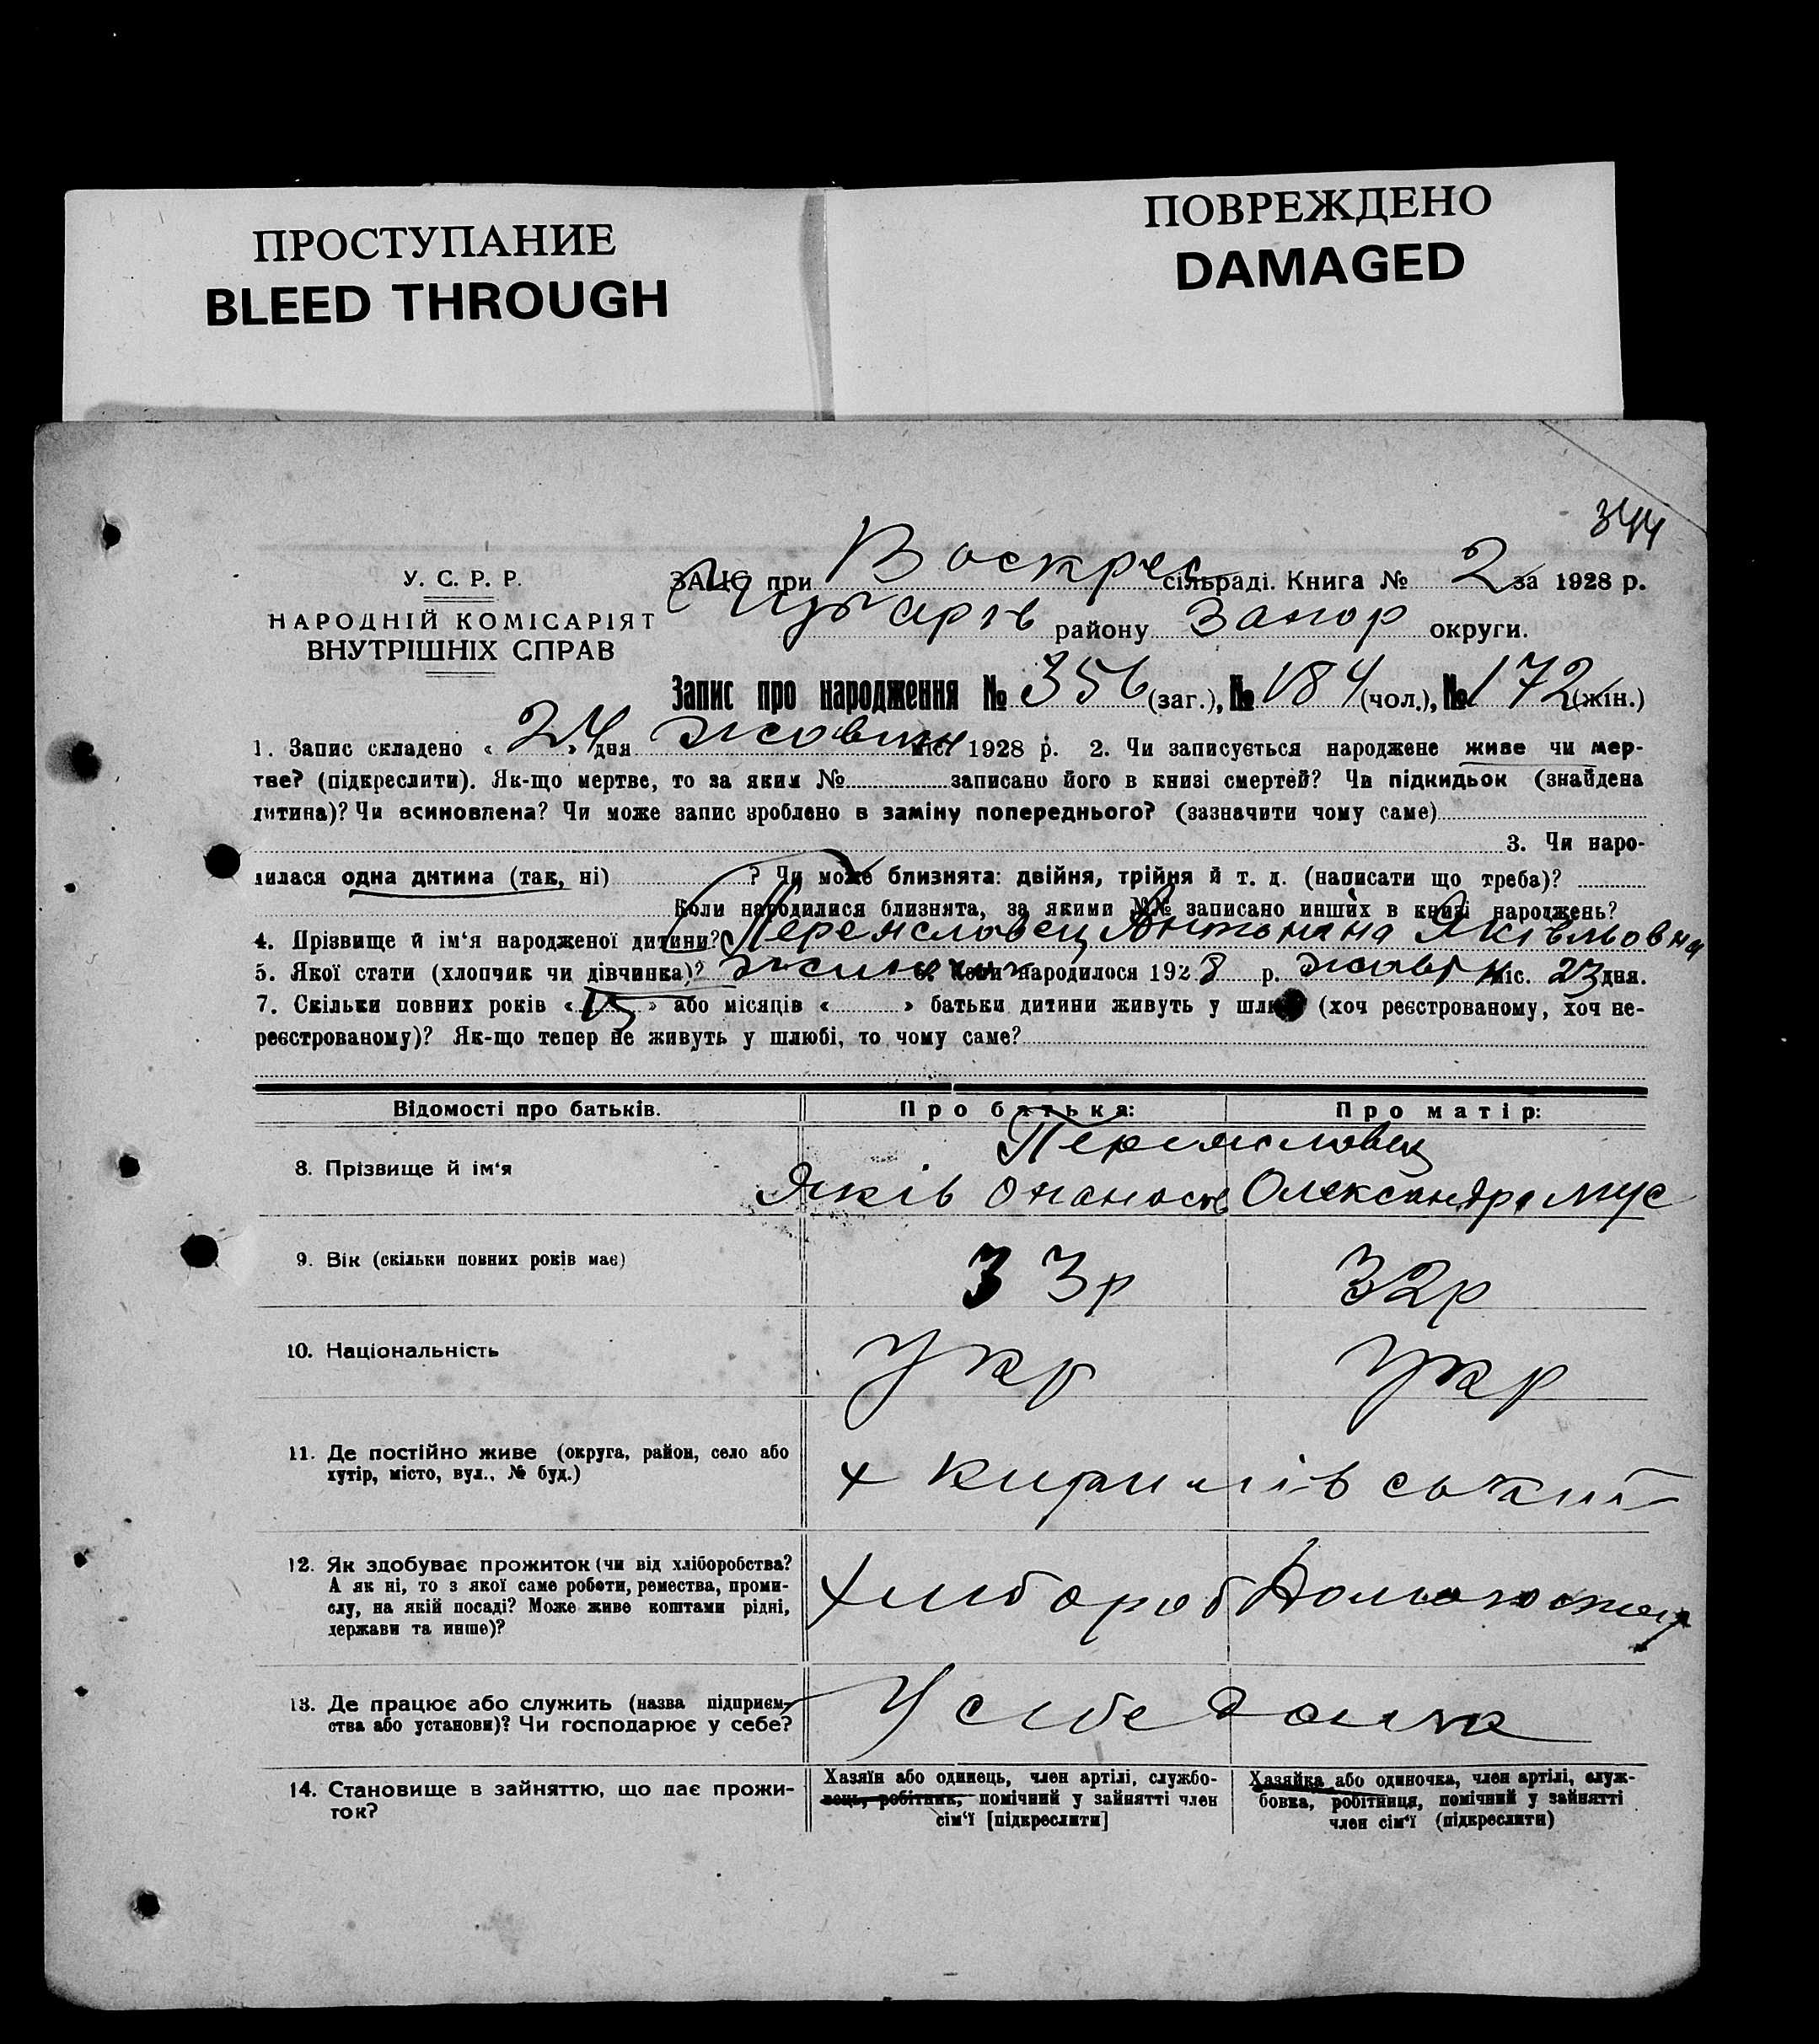 ПРОСТУПАНИЕ
BLEED THROUGH
ПОВРЕЖДЕНО
DAMAGED
344
У. С. Р. Р.
НАРОДНІЙ КОМІСАРІЯТ
ВНУТРІШНІХ СПРАВ
ЗАЦС при Воскрес сільраді. Книга № 2 за 1928 р.
району Запор округи.
Запис про народження № 356 (заг.), № 184 (чол.), № 172 (жін.)
1. Запис складено « 24 » дня жовтн міс. 1928 р. 2. Чи записується народжене живе чи мер-
тве? (підкреслити). Як-що мертве, то за яким № записано його в книзі смертей? Чи підкидьок (знайдена
дитина)? Чи всиновлена? Чи може запис зроблено в заміну попереднього? (зазначити чому саме)
3. Чи наро-
дилася одна дитина (так, ні) ? Чи може близнята: двійня, трійня й т. д. (написати що треба)?
Коли народилися близнята, за якими №№ записано инших в книзі народжень?
4. Прізвище й ім'я народженої дитини? Переясловец Антонина Яківльовна
5. Якої стати (хлопчик чи дівчинка)? 6. Коли народилося 1928 р. жовтн міс. 23 дня.
7. Скільки повних років « » або місяців « » батьки дитини живуть у шлюбі (хоч реєстрованому, хоч не-
реєстрованому)? Як-що тепер не живуть у шлюбі, то чому саме?
Відомості про батьків. Про батька: Про матір:
Переясловец
8. Прізвище й ім'я Яків Опанасов Олександра Мус
9. Вік (скільки повних років має) 33р 32р
10. Національність Укр Укр
11. Де постійно живе (округа, район, село або
хутір, місто, вул., № буд.) х Кирилівський
12. Як здобуває прожиток (чи від хліборобства?
А як ні, то з якої саме роботи, ремества, проми-
слу, на якій посаді? Може живе коштами рідні,
держави та инше)? Хлибороб
13. Де працює або служить (назва підприєм-
ства або установи)? Чи господарює у себе? У себе дома
14. Становище в зайняттю, що дає прожи-
ток?
Хазяїн або одинець, член артілі, службо-
вець, робітник, помічний у зайнятті член
сім'ї [підкреслити]
Хазяйка або одиночка, член артілі, служ-
бовка, робітниця, помічний у зайнятті
член сім'ї (підкреслити)